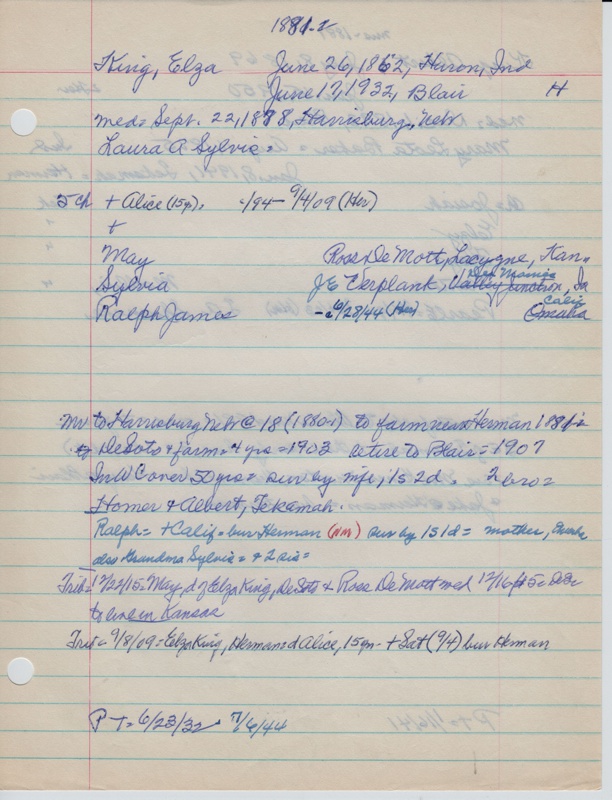 1881-2
King, Elza June 26, 1862, Huron, Ind
June 17, 1932, Blair H
med = Sept. 22, 1888, Harrisburg, Neb
Laura A Sylvis =
5 ch + Alice (15 yr), -/94 - 9/4/09 (Her)
+
May Ross DeMott, Lacygne, Kan..
Sylvia JE Verplank, Valley Junction, Ia Des Moines
Ralph James - 6/28/44 (Her) Omaha Calif
Mv to Harrisburg Neb @ 18 (1880-1) to farm near Herman 1881-2
DeSoto & farm = 4 yrs = 1903 retire to Blair = 1907
In W C over 50 yrs = sur by wife, 1s 2d. 2 bro =
Homer & Albert, Tekamah.
Ralph = + Calif = bur Herman (NM) sur by 1s 1d = mother,
also Grandma Sylvis = & 2 sis =
Trib = 12/22/15 = May, d of Elza King, DeSoto & Ross DeMott med 12/16/15 =
to live in Kansas
Trib = 9/8/09 = Elza King, Herman = d Alice, 15 yr - + Sat (9/4) bur Herman
P T = 6/23/32 7/6/44